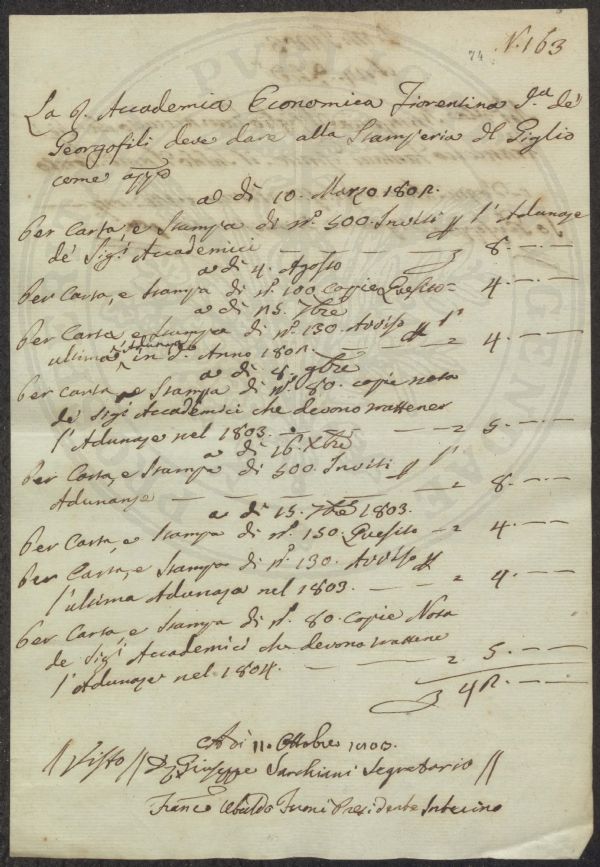 74
N. 163
La R. Accademia Economica Fiorentina Ja. de
Georgofili deve dare alla Stamperia del Giglio
come app.o
a dì 10. Marzo 1802.
Per Carta, e Stampa di n.o 500. Inviti p l'Adunaze
de' Sigi. Accademici — — — 8. — —
a dì 4. Agosto
Per Carta, e Stampa di n.o 100 copie Quesito = 4. — —
a dì 15. 7bre
Per Carta, e Stampa di n.o 130. Avviso p l'
ultima Adunaza in d.o Anno 1802. — — = 4. — —
a dì 8. 9bre
Per carta, e Stampa di n.o 80. copie nota
de' Sigi. Accademici che devono trattener
l'Adunaze nel 1803. — — — = 5. — —
a dì 16 Xbre
Per Carta, e Stampa di 500. Inviti p l'
Adunanze — — — — = 8. — —
a dì 15. 7bre 1803.
Per Carta, e Stampa di n.o 150. Quesito = 4. — —
Per Carta, e Stampa di n.o 130. Avviso p
l'ultima Adunaza nel 1803. — — = 4. — —
Per Carta, e Stampa di n.o 80. Copie Nota
de Sigi. Accademici che devono trattene
l'Adunaze nel 1804. — — — = 5. — —
42. — —
A dì 11. Ottobre 1803.
// Visto // Dr. Giuseppe Sarchiani Segretario //
Franc.o Ubaldo Presidente Interino